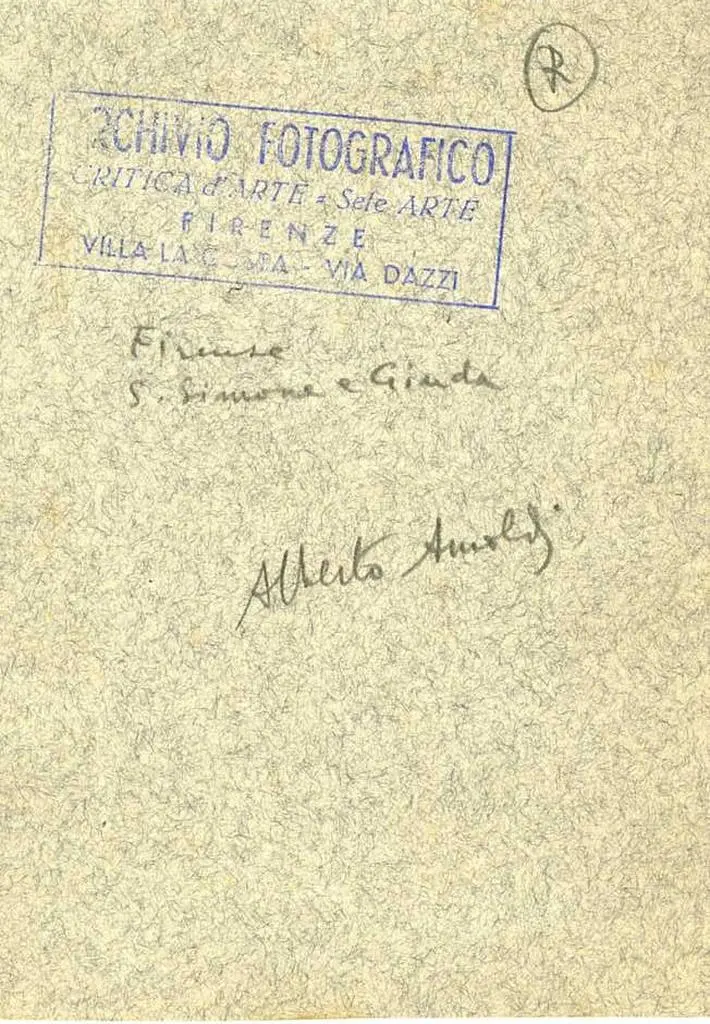 R
ARCHIVIO FOTOGRAFICO
CRITICA d'ARTE = Sele ARTE
FIRENZE
VILLA LA - VIA DAZZI
Firenze
S. Simone e Giuda
Alberto Arnoldi